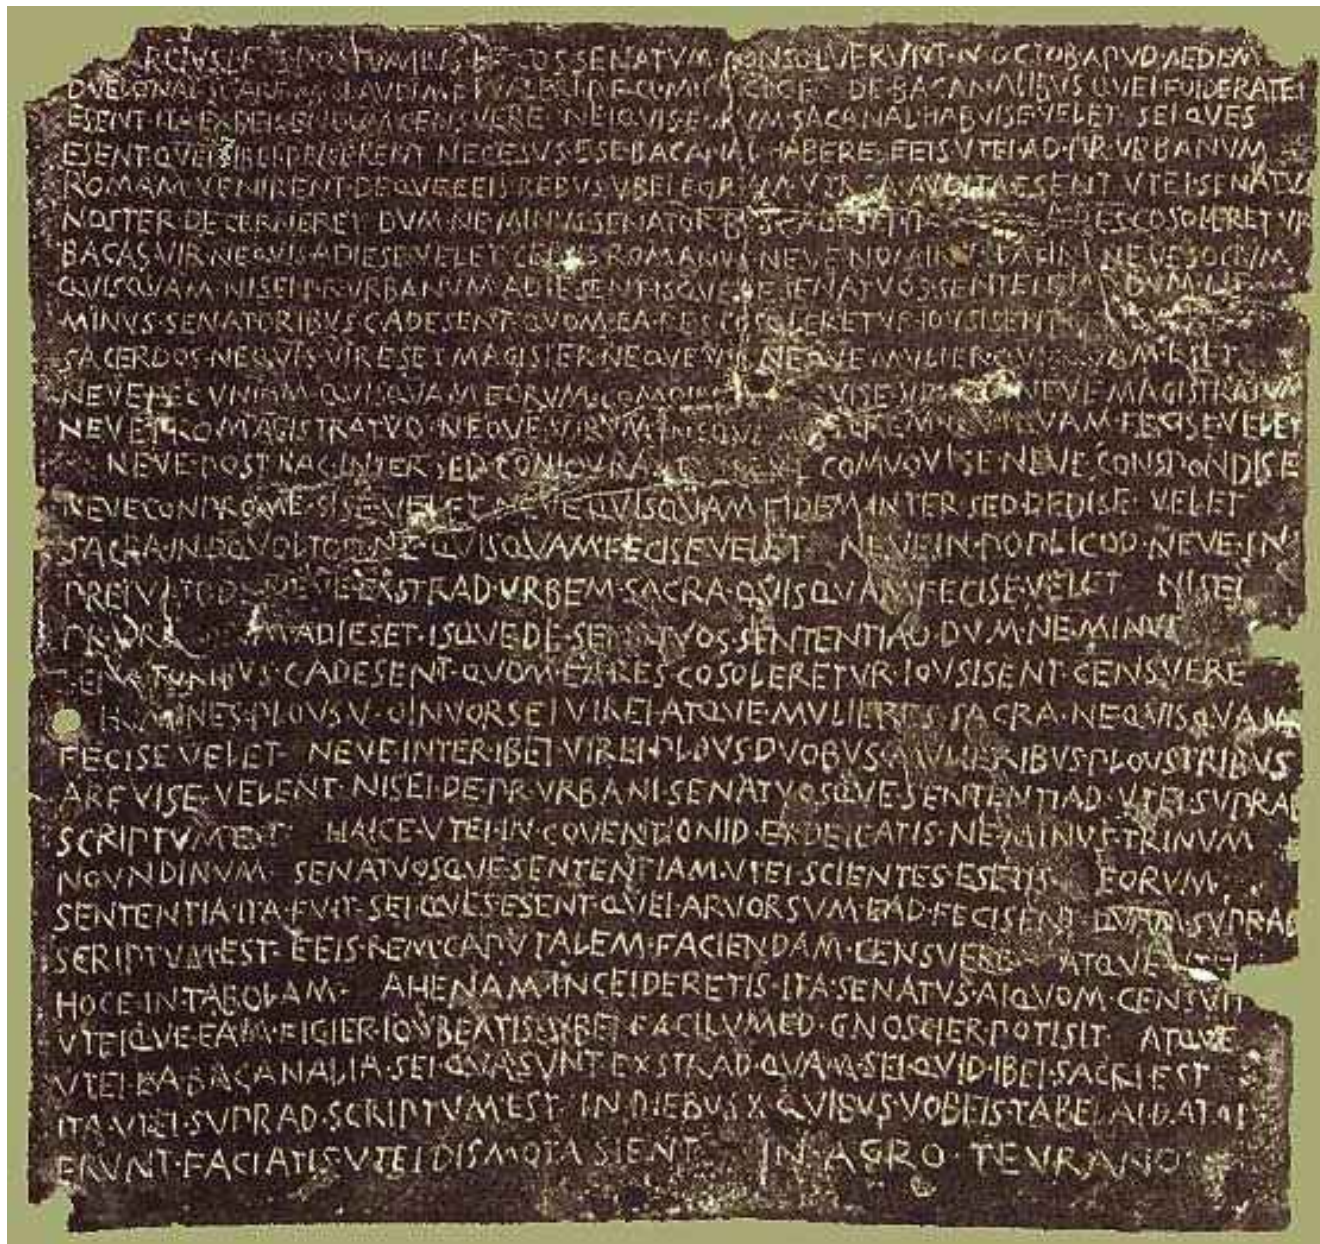 POSTVMIVS·L·F·COS SENATVM CONSOLVERVNT·N·OCTOB·APVD·AEDEM
DVELONAI·SC·ARF·M·CLAVDI·M·F DE·BACANALIBVS·QVEI·FOIDERATEI
ESENT·ITA·EXDEICENDVM·CENSVERE NEIQVIS·EORVM·SACANAL·HABVISE·VELET SEI·QVES
ESENT·QVEI·SIBEI·DEICERENT NECESVS·ESE·BACANAL·HABERE·EEIS·VTEI·AD·PR·VRBANVM
ROMAM·VENIRENT·DEQVE·EEIS·REBVS·VBEI·EORVM·VTR A·AVDITA·ESENT VTEI·SENATVS
NOSTER·DECERNERET DVM·NE·MINVS·SENATORBVS·C·ADESENT RES·COSOLERETVR
BACAS·VIR·NEQVIS·ADIESE·VELET CEIVIS·ROMANVS·NEVE·NOMINVS·LATINI·NEVE·SOCIVM
QVISQVAM·NISEI·PR·VRBANVM·ADIESENT·ISQVE·DE·SENATVOS·SENTENTIAD DVM·NE
MINVS·SENATORIBVS·C·ADESENT·QVOM·EA·RES·COSOLERETVR·IOVSISENT
SACERDOS·NEQVIS·VIR·ESET·MAGISTER·NEQVE·VIR NEQVE·MVLIER·QVISQVAM·ESET
NEVE·PECVNIAM·QVISQVAM·EORVM·COMOINE VISE·VELET NEVE·MAGISTRATVM
NEVE·PRO·MAGISTRATVD·NEQVE·VIRVM·NEQVE MVLIEREM QVISQVAM·FECISE·VELET
NEVE·POST·HAC·INTER·SED·CONIOVRA NEVE COMVOVISE·NEVE·CONSPONDISE
NEVE·CONPROMESISE·VELET·NEVE·QVISQVAM·FIDEM·INTER·SED·DEDISE·VELET
SACRA·IN·OQVOLTOD·NE·QVISQVAM·FECISE·VELET NEVE·IN·POPLICOD·NEVE·IN
PREIVATOD·NEVE·EXSTRAD·VRBEM·SACRA·QVISQVAM·FECISE·VELET NISEI
PR·VRBANVM·ADIESET·ISQVE·DE·SENATVOS·SENTENTIAD DVM·NE·MINVS
SENATORIBVS·C·ADESENT·QVOM·EA·RES·COSOLERETVR·IOVSISENT·CENSVERE
HOMINES·PLOVS·V·OINVORSEI VIREI·ATQVE·MVLIERES·SACRA·NE·QVISQVAM
FECISE·VELET NEVE·INTER·IBEI VIREI·PLOVS·DVOBVS·MVLIERIBVS·PLOVS·TRIBVS
ARFVISE·VELENT·NISEI·DE·PR·VRBANI·SENATVOSQVE·SENTENTIAD·VTEI·SVPRAD
SCRIPTVM·EST HAICE·VTEI·IN·COVENTIONID·EXDEICATIS·NE·MINVS·TRINVM
NOVNDINVM SENATVOSQVE·SENTENTIAM·VTEI·SCIENTES·ESETIS EORVM
SENTENTIA·ITA·FVIT·SEI·QVES·ESENT·QVEI·ARVORSVM·EAD·FECISENT·QVAM·SVPRAD
SCRIPTVM·EST·EEIS·REM·CAPVTALEM·FACIENDAM·CENSVERE ATQVE·VTEI
HOCE·IN·TABOLAM AHENAM·INCEIDERETIS·ITA·SENATVS·AIQVOM·CENSVIT
VTEIQVE·EAM·FIGIER·IOVBEATIS·VBEI·FACILVMED·GNOSCIER·POTISIT ATQVE
VTEI·EA·BACANALIA·SEI·QVA·SVNT·EXSTRAD·QVAM·SEI·QVID·IBEI·SACRI·EST
ITA·VTEI·SVPRAD·SCRIPTVM·EST IN·DIEBVS·X·QVIBVS·VOBEIS·TABELAI·DATAI
ERVNT·FACIATIS·VTEI·DISMOTA·SIENT IN·AGRO·TEVRANO